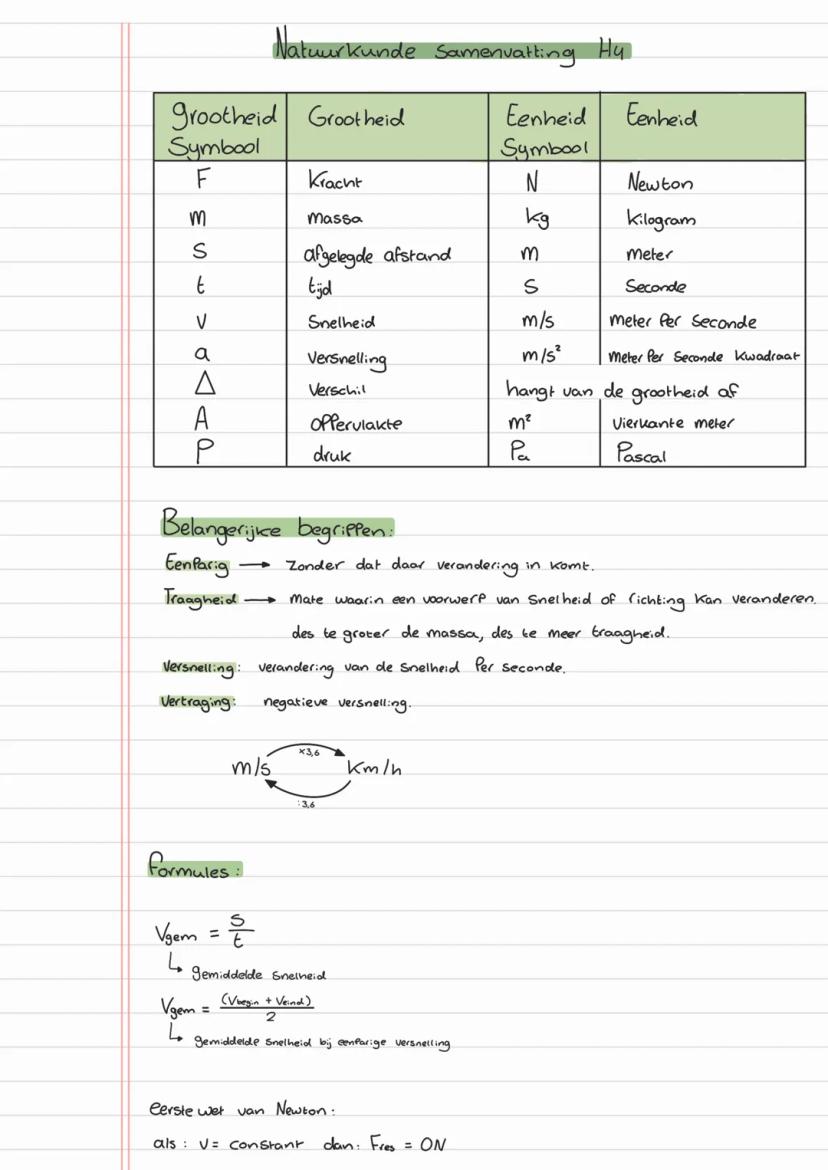 Natuurkunde Samenvatting H4
grootheid Symbool Grootheid Eenheid Symbool Eenheid
F Kracht N Newton
m massa kg Kilogram
S afgelegde afstand m meter
t tijd S Seconde
v Snelheid m/s meter Per Seconde
a Versnelling m/s² meter Per Seconde Kwadraat
Δ Verschil hangt van de grootheid af
A oppervlakte m² Vierkante meter
P druk Pa Pascal
Belangerijke begrippen:
Eenparig → Zonder dat daar verandering in komt.
Traagheid → Mate waarin een voorwerp van Snelheid of richting Kan veranderen.
des te groter de massa, des te meer traagheid.
Versnelling: verandering van de Snelheid Per Seconde.
Vertraging: negatieve versnelling.
×3,6
m/s Km/h
:3,6
formules:
Vgem = S/t
↳ gemiddelde Snelheid
Vgem = (Vbegin + Veind)/2
↳ gemiddelde Snelheid bij eenparige versnelling
eerste wet van Newton:
als: v = constant dan: Fres = 0N